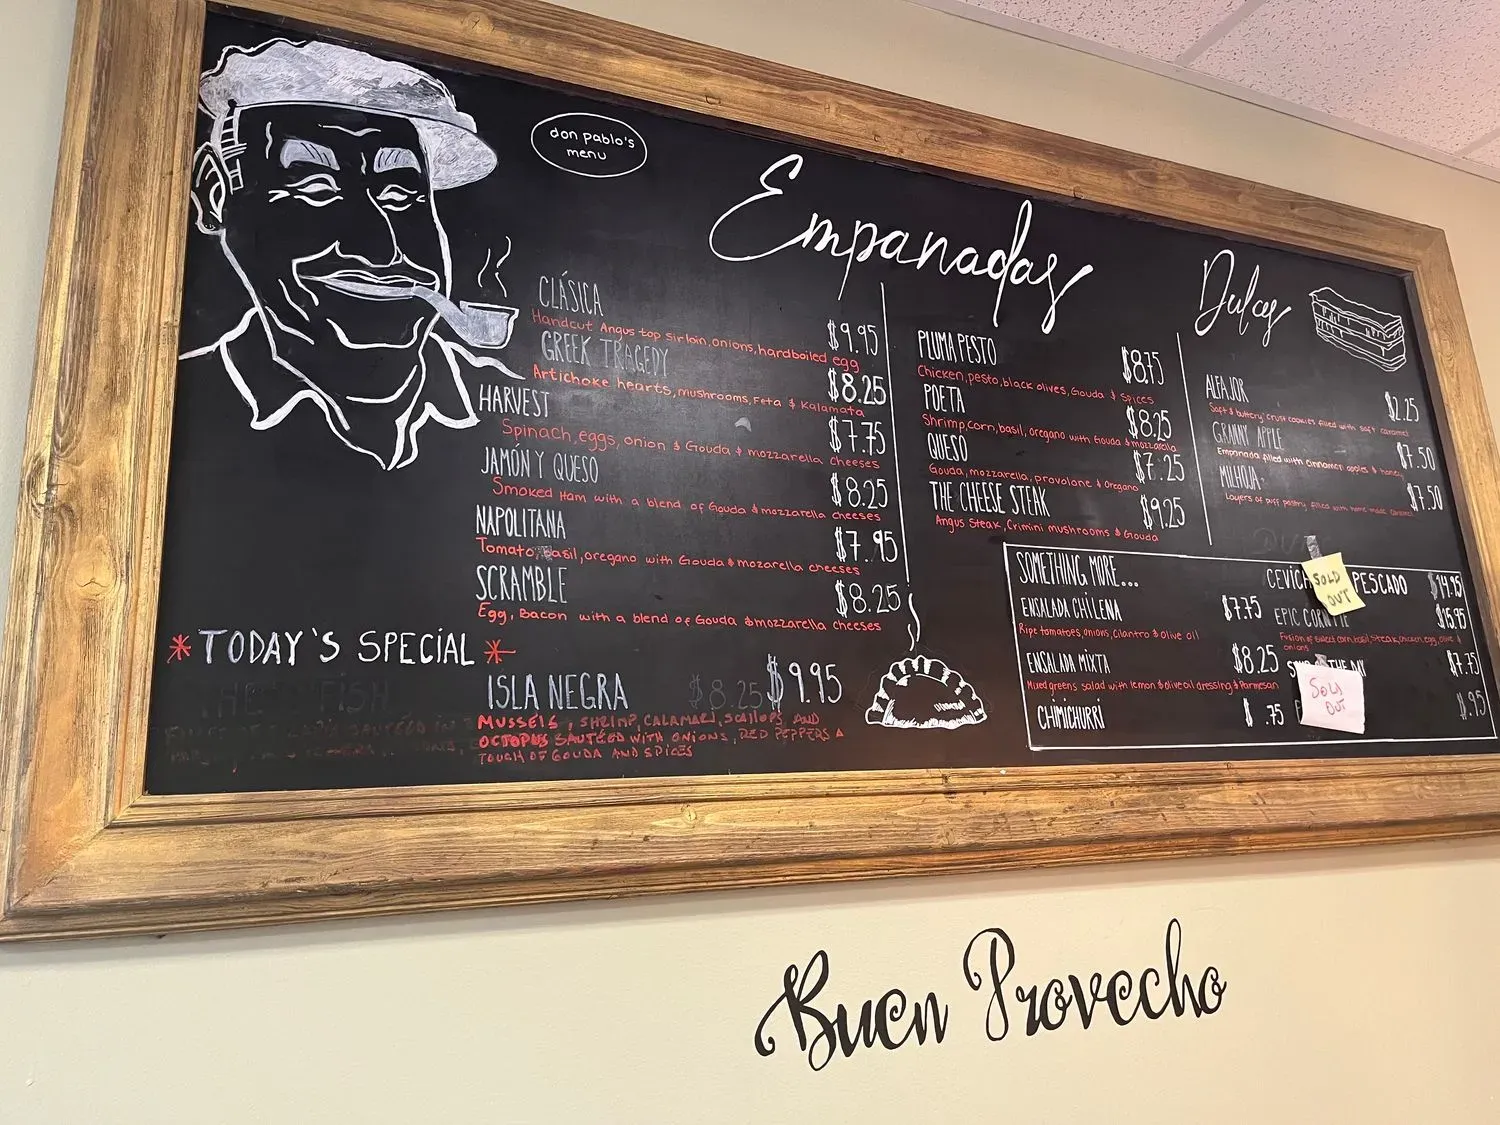 don pablo's
menu
Empanadas
CLÁSICA $9.95
Handcut Angus top sirloin, onions, hardboiled egg
GREEK TRAGEDY $8.25
Artichoke hearts, mushrooms, Feta & Kalamata
HARVEST $7.75
Spinach, eggs, onion & Gouda & mozzarella cheeses
JAMÓN Y QUESO $8.25
Smoked Ham with a blend of Gouda & mozzarella cheeses
NAPOLITANA $7.95
Tomato, Basil, oregano with Gouda & mozarella cheeses
SCRAMBLE $8.25
Egg, Bacon with a blend of Gouda & mozzarella cheeses
*TODAY'S SPECiAL*
ISLA NEGRA $8.25 $9.95
MUSSELS, SHRIMP, CALAMARI, SCALLOPS AND
OCTOPUS SAUTÉED WITH ONIONS, RED PEPPERS A
TOUCH OF GOUDA AND SPICES
PLUMA PESTO $8.75
Chicken, pesto, black olives, Gouda & spices
POETA $8.25
Shrimp, corn, basil, oregano with Gouda & mozzarella
QUESO $7.25
Gouda, mozzarella, provolone & Oregano
THE CHEESE STEAK $9.25
Angus Steak, Crimini mushrooms & Gouda
Dulces
ALFAJOR $2.25
Soft & buttery crust cookies filled with soft caramel
GRANNY APPLE $7.50
Empanada filled with cinnamon apples & honey
MILHOJA $7.50
Layers of puff pastry filled with home made caramel
SOMETHING MORE...
ENSALADA CHILENA $7.75
Ripe tomatoes, onions, cilantro & olive oil
ENSALADA MIXTA $8.25
Mixed greens salad with lemon & olive oil dressing & Parmesan
CHIMICHURRI $.75
PESCADO $14.95
SOLD
OUT
EPIC CORN $15.95
Fusion of sweet corn, basil, steak, chicken, egg, olive &
onions
THE DAY $7.75
SOLD
OUT
.95
Buen Provecho